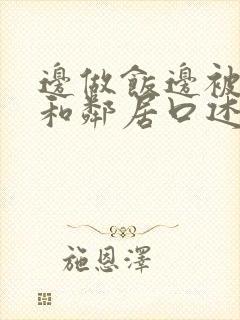 邊做飯邊被
和鄰居口述
施恩澤